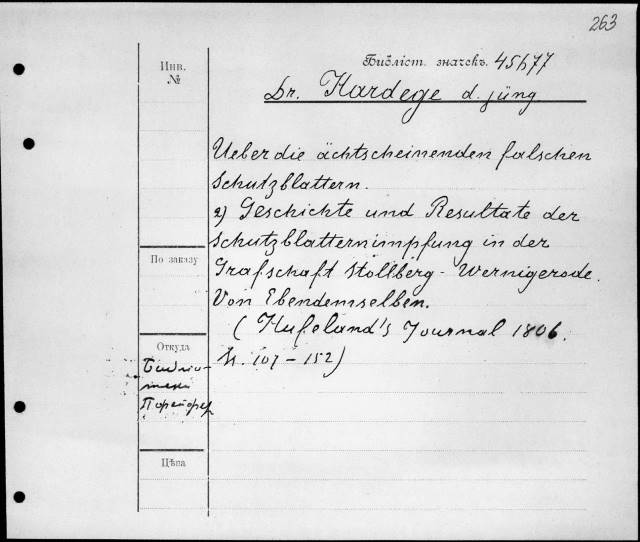 263
Инв.
№
Библіст. значекъ. 45h77
Dr. Hardege d. jüng.
Ueber die ächtscheinenden falschen
Schutzblattern.
2) Geschichte und Resultate der
Schutzblatternimpfung in der
Grafschaft Stollberg-Wernigerode.
Von Ebendemselben.
(Hufeland's Journal 1806.
h. 107-152)
По заказу
Откуда
Библіо-
теки
Цѣна